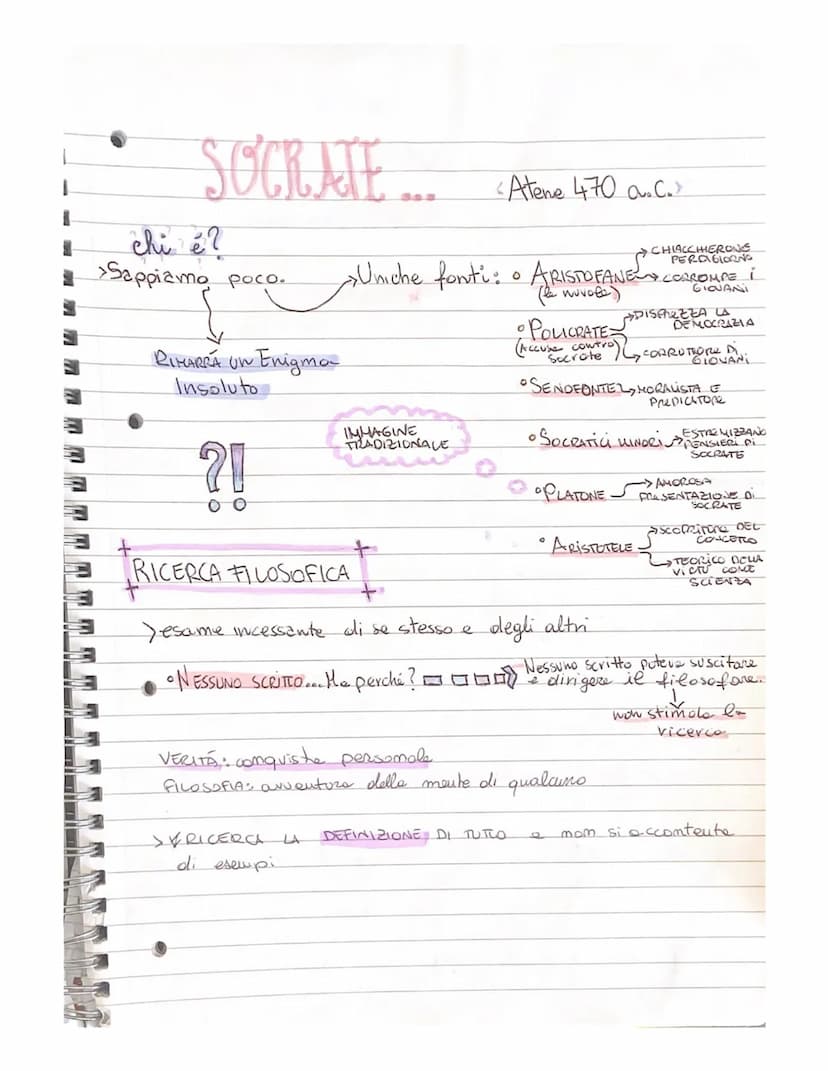 SOCRATE...
<Atene 470 a.C.>
chi é?
>Sappiamo poco.
Uniche fonti:
• ARISTOFANE
(le nuvole)
CHIACCHERONE
PERDIGIORNO
CORROMPE I
GIOVANI
• POLICRATE
(Accuse contro
Socrate)
DISPREZZA LA
DEMOCRAZIA
CORRUTTORE DI
GIOVANI
RIMARRÁ UN Enigma
Insoluto
• SENOFONTE
MORALISTA E
PREDICATORE
IMMAGINE
TRADIZIONALE
• SOCRATICI MINORI
ESTREMIZZANO
PENSIERI DI
SOCRATE
?!
• PLATONE
AMOROSA
PRESENTAZIONE DI
SOCRATE
• ARISTOTELE
SCOPRITORE DEL
CONCETTO
TEORICO DELLA
VIRTÙ COME
SCIENZA
RICERCA FILOSOFICA
>esame incessante di se stesso e degli altri
• NESSUNO SCRITTO... Ma perché?
Nessuno scritto poteva suscitare
e dirigere il filosofare..
non stimola la
ricerca
VERITÁ: conquista personale
FILOSOFIA: avventura della mente di qualcuno
> RICERCA LA DEFINIZIONE DI TUTTO e non si accontenta
di esempi